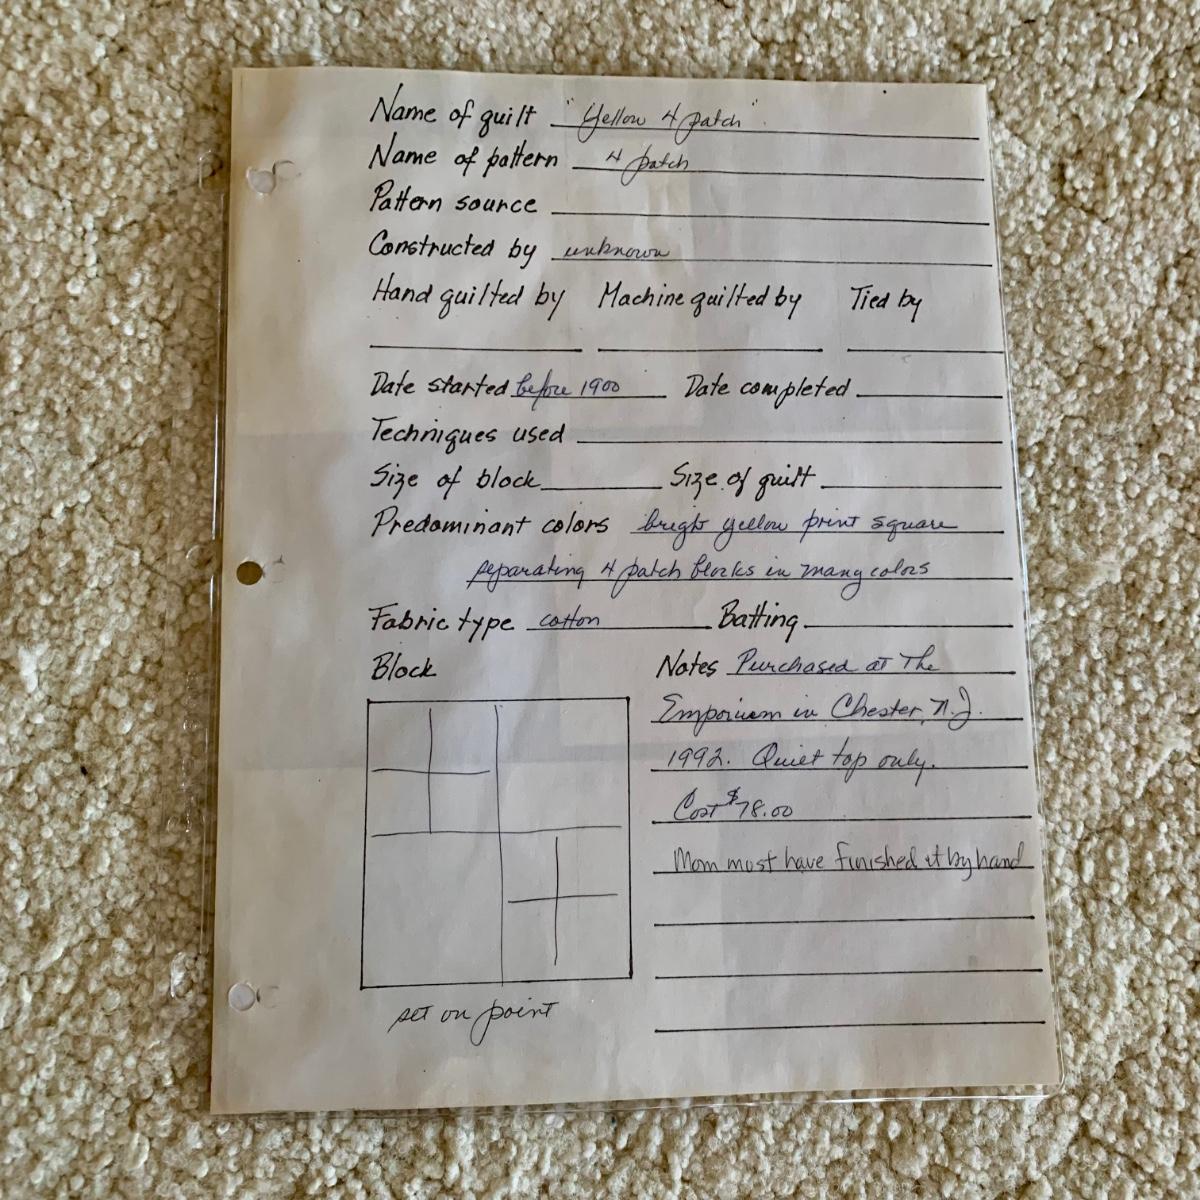 Name of quilt "Yellow 4 patch"
Name of pattern 4 patch
Pattern source
Constructed by unknown
Hand quilted by Machine quilted by Tied by
Date started before 1900 Date completed
Techniques used
Size of block Size of quilt
Predominant colors bright yellow print square
separating 4 patch blocks in many colors
Fabric type cotton Batting
Block
Notes Purchased at The
Emporium in Chester, N.J.
1992. Quilt top only.
Cost $78.00
Mom must have finished it by hand
set on point